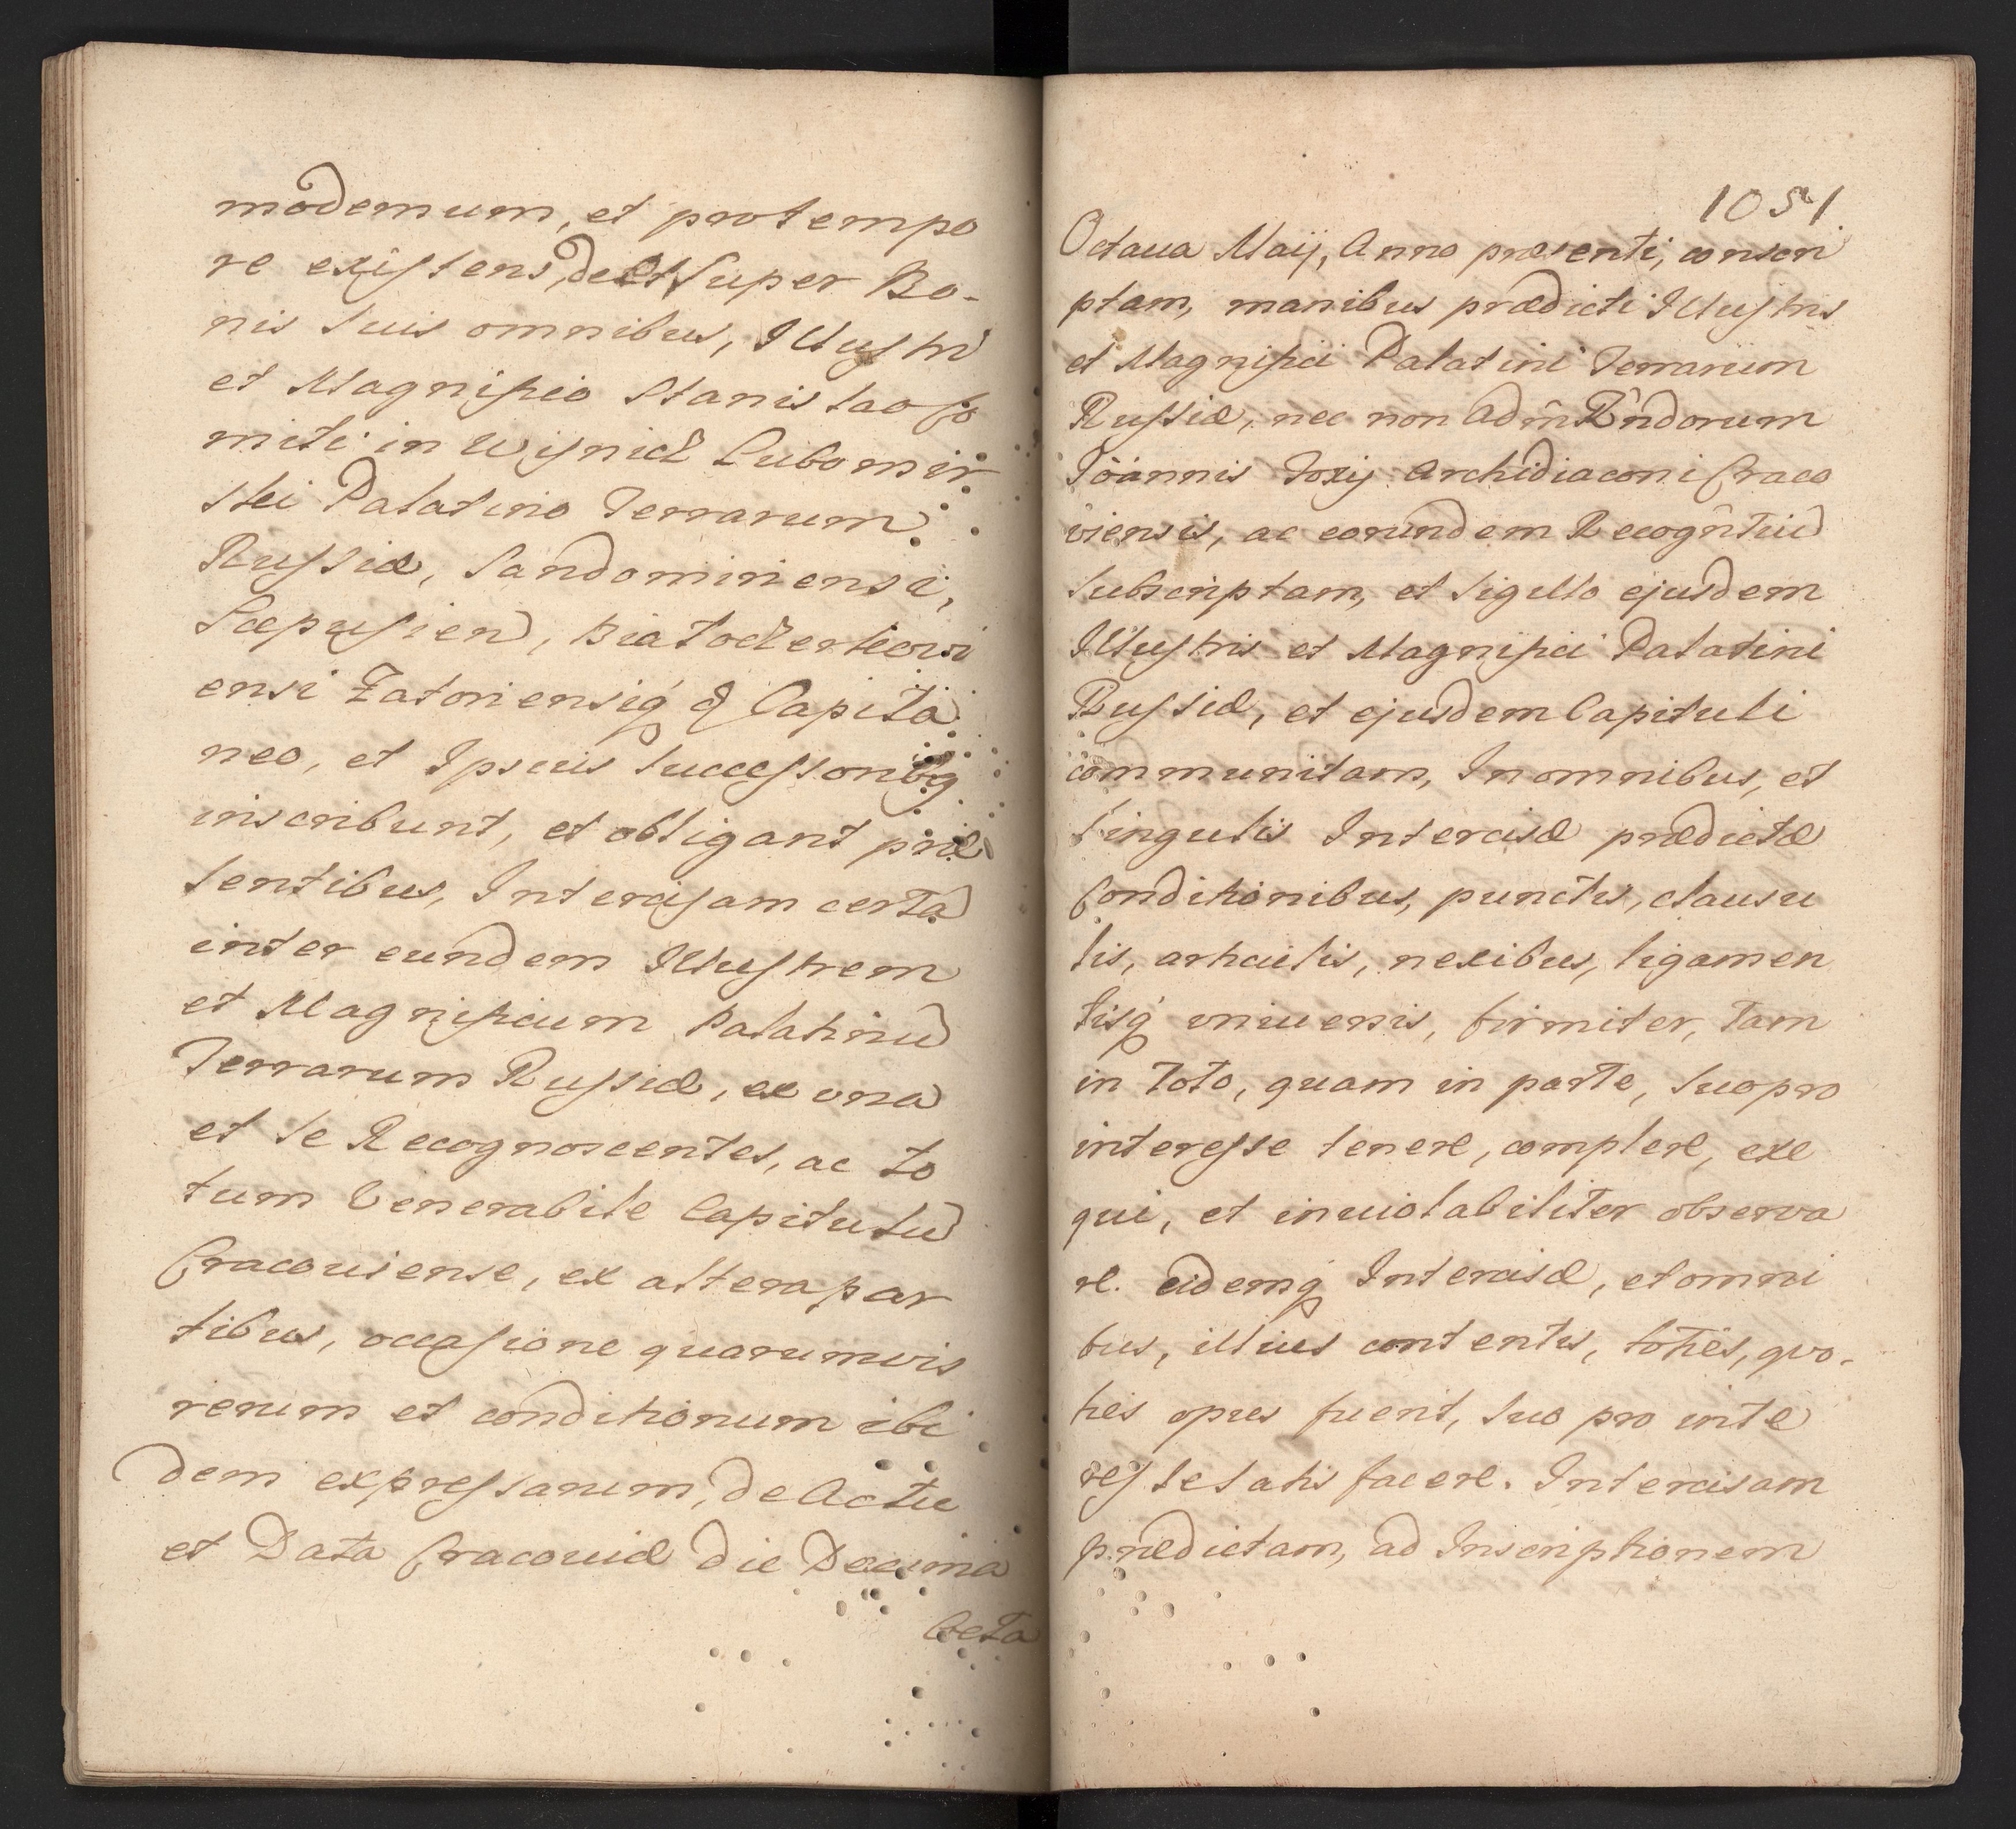 modernum, et pro tempo
re existens, de et Super Bo-
nis suis omnibus, Illustri
et Magnifico Stanislao Co
miti in Wisnicz Lubomir
skei Palatino Terrarum
Russiæ, Sandomiriensi,
Scepusien, Biatoczerkiewi
ensi Zatoriensiq́ & Capita
neo, et Ipsius Successoribq
inscribunt, et obligant præ
sentibus, Intercisam certā
inter eundem Illustrem
et Magnificum Palatinū
Terrarum Russiæ, ex una
et se Recognoscentes, ac to
tum Venerabile Capitulū
Cracouiense, ex altera par
tibus, occasione quarumvis
rerum et conditionum ibi
dem expressarum, de Actu
et Data Cracouiæ die Decima
Octa
1051
Octaua Maij, Anno præsenti, conscri
ptam, manibus prædicti Illustris
et Magnifici Palatini Terrarum
Russiæ, nec non Adm̃ R̃ndorum
Joannis Foxij Archidiaconi Craco
viensis, ac eorundem Recogn̂tiū
Subscriptam, et Sigillo ejusdem
Illustris et Magnifici Palatini
Russiæ, et ejusdem Capituli
communitam, In omnibus, et
singulis Intercisæ prædictæ
Conditionibus, punctis, clausu
lis, articulis, nexibus, ligamen
tisq́ uniuersis, firmiter, tam
in Toto, quam in parte, suo pro
interesse tenere, complere, exe
qui, et inuiolabiliter observa
re. eidemq́ Intercisæ, et omni
bus, illius contentis, toties, quo-
ties opus fuerit, suo pro inte
resse satis facere. Intercisam
prædictam, ad Inscriptionem